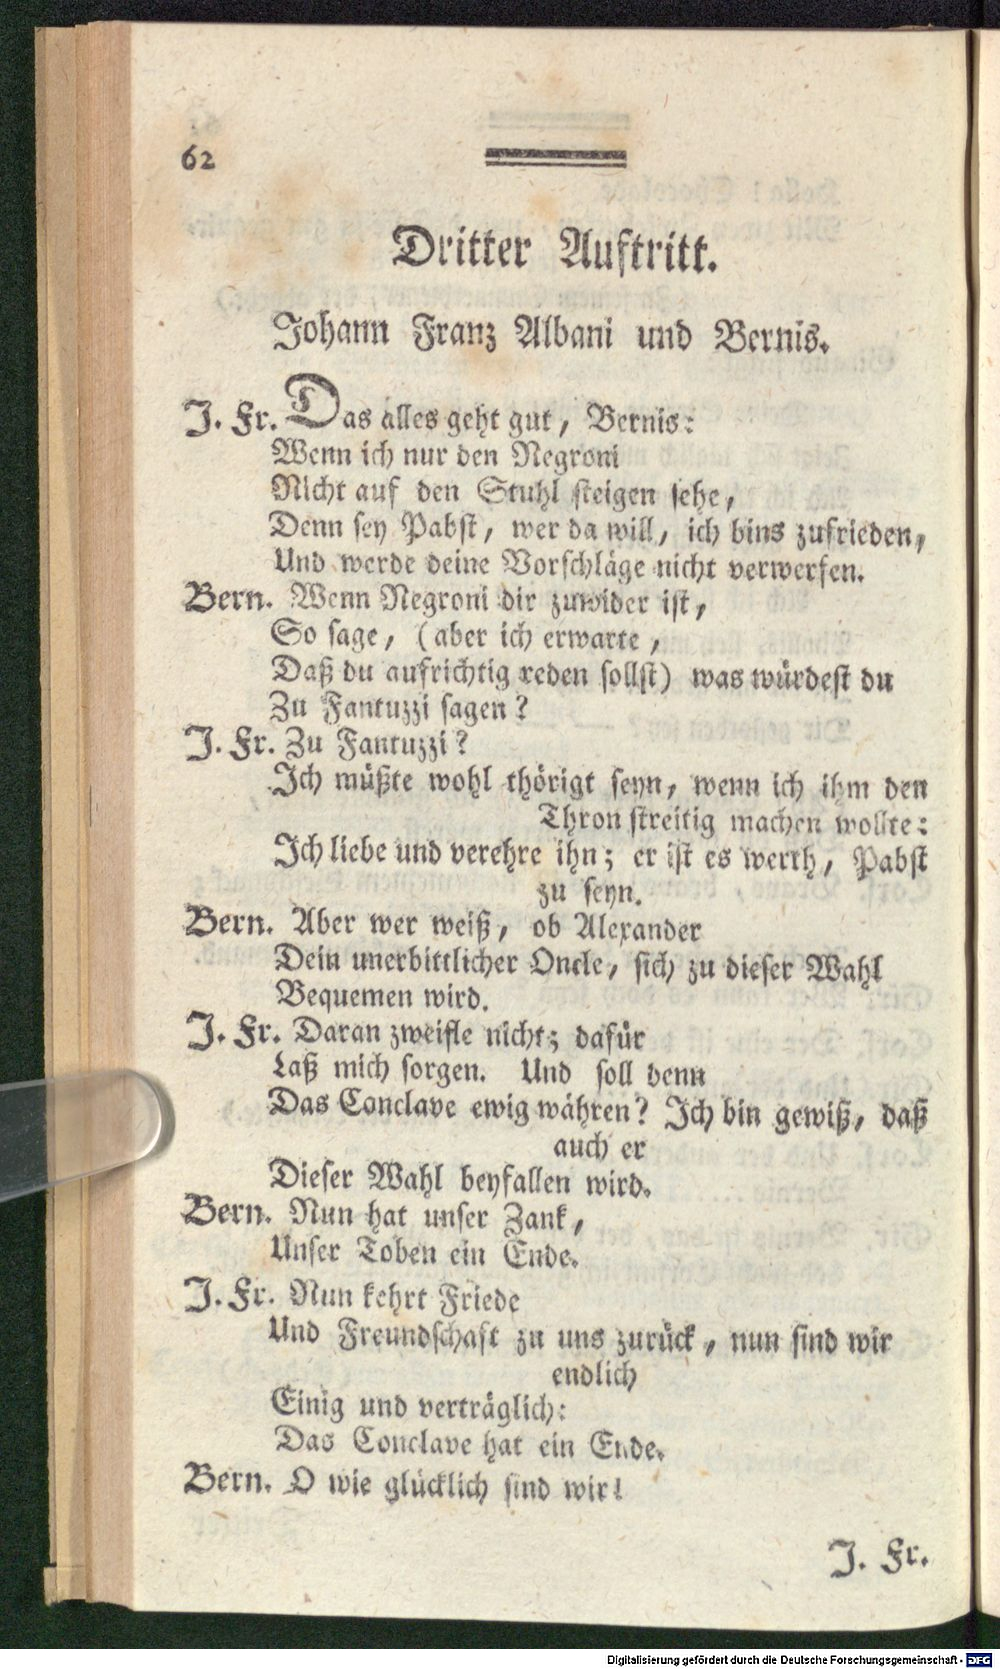 62
Dritter Auftritt.
Johann Franz Albani und Bernis.
J. Fr. Das alles geht gut, Bernis:
Wenn ich nur den Negroni
Nicht auf den Stuhl steigen sehe,
Denn sey Pabst, wer da will, ich bins zufrieden,
Und werde deine Vorschläge nicht verwerfen.
Bern. Wenn Negroni dir zuwider ist,
So sage, (aber ich erwarte,
Daß du aufrichtig reden sollst) was würdest du
Zu Fantuzzi sagen?
J. Fr. Zu Fantuzzi?
Ich müßte wohl thörigt seyn, wenn ich ihm den
Thron streitig machen wollte:
Ich liebe und verehre ihn; er ist es werth, Pabst
zu seyn.
Bern. Aber wer weiß, ob Alexander
Dein unerbittlicher Oncle, sich zu dieser Wahl
Bequemen wird.
J. Fr. Daran zweifle nicht; dafür
Laß mich sorgen. Und soll denn
Das Conclave ewig währen? Ich bin gewiß, daß
auch er
Dieser Wahl beyfallen wird.
Bern. Nun hat unser Zank,
Unser Toben ein Ende.
J. Fr. Nun kehrt Friede
Und Freundschaft zu uns zurück, nun sind wir
endlich
Einig und verträglich:
Das Conclave hat ein Ende.
Bern. O wie glücklich sind wir!
J. Fr.
Digitalisierung gefördert durch die Deutsche Forschungsgemeinschaft - DFG